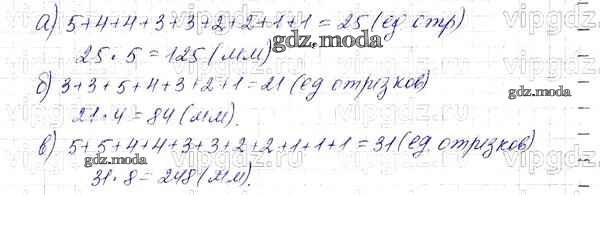 а) 5+4+4+3+3+2+2+1+1 = 25 (ед отр)
25 · 5 = 125 (мм)
gdz.moda
б) 3+3+5+4+3+2+1 = 21 (ед отрезков)
gdz.moda
21 · 4 = 84 (мм).
в) 5+5+4+4+3+3+2+2+1+1+1 = 31 (ед. отрезков)
gdz.moda
31 · 8 = 248 (мм).
vipgdz.ru